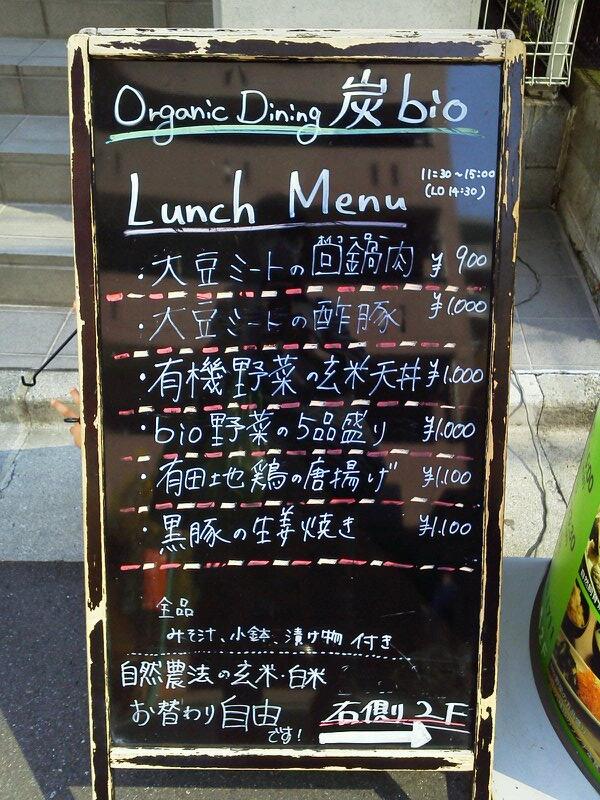 Organic Dining 炭 bio
Lunch Menu
11:30～15:00
(LO 14:30)
・大豆ミートの回鍋肉 ¥900
・大豆ミートの酢豚 ¥1.000
・有機野菜の玄米天丼 ¥1.000
・bio野菜の5品盛り ¥1.000
・有田地鶏の唐揚げ ¥1.100
・黒豚の生姜焼き ¥1.100
全品
みそ汁、小鉢、漬け物 付き
自然農法の玄米・白米
お替わり自由です!
右側り 2F